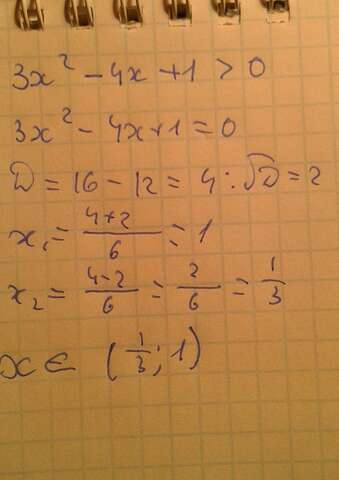 3x² - 4x + 1 > 0
3x² - 4x + 1 = 0
D = 16 - 12 = 4 : √D = 2
x₁ = (4+2)/6 = 1
x₂ = (4-2)/6 = 2/6 = 1/3
x ∈ (1/3; 1)